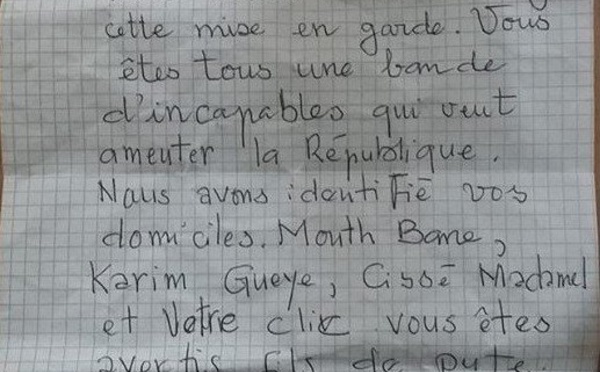 cette mise en garde. Vous
êtes tous une bande
d'incapables qui veut
ameuter la République.
Naus avons identifié vos
domiciles. Mouth Bane,
Karim Gueye, Cissé Madamel
et Votre clic vous êtes
avertis fils de pute.